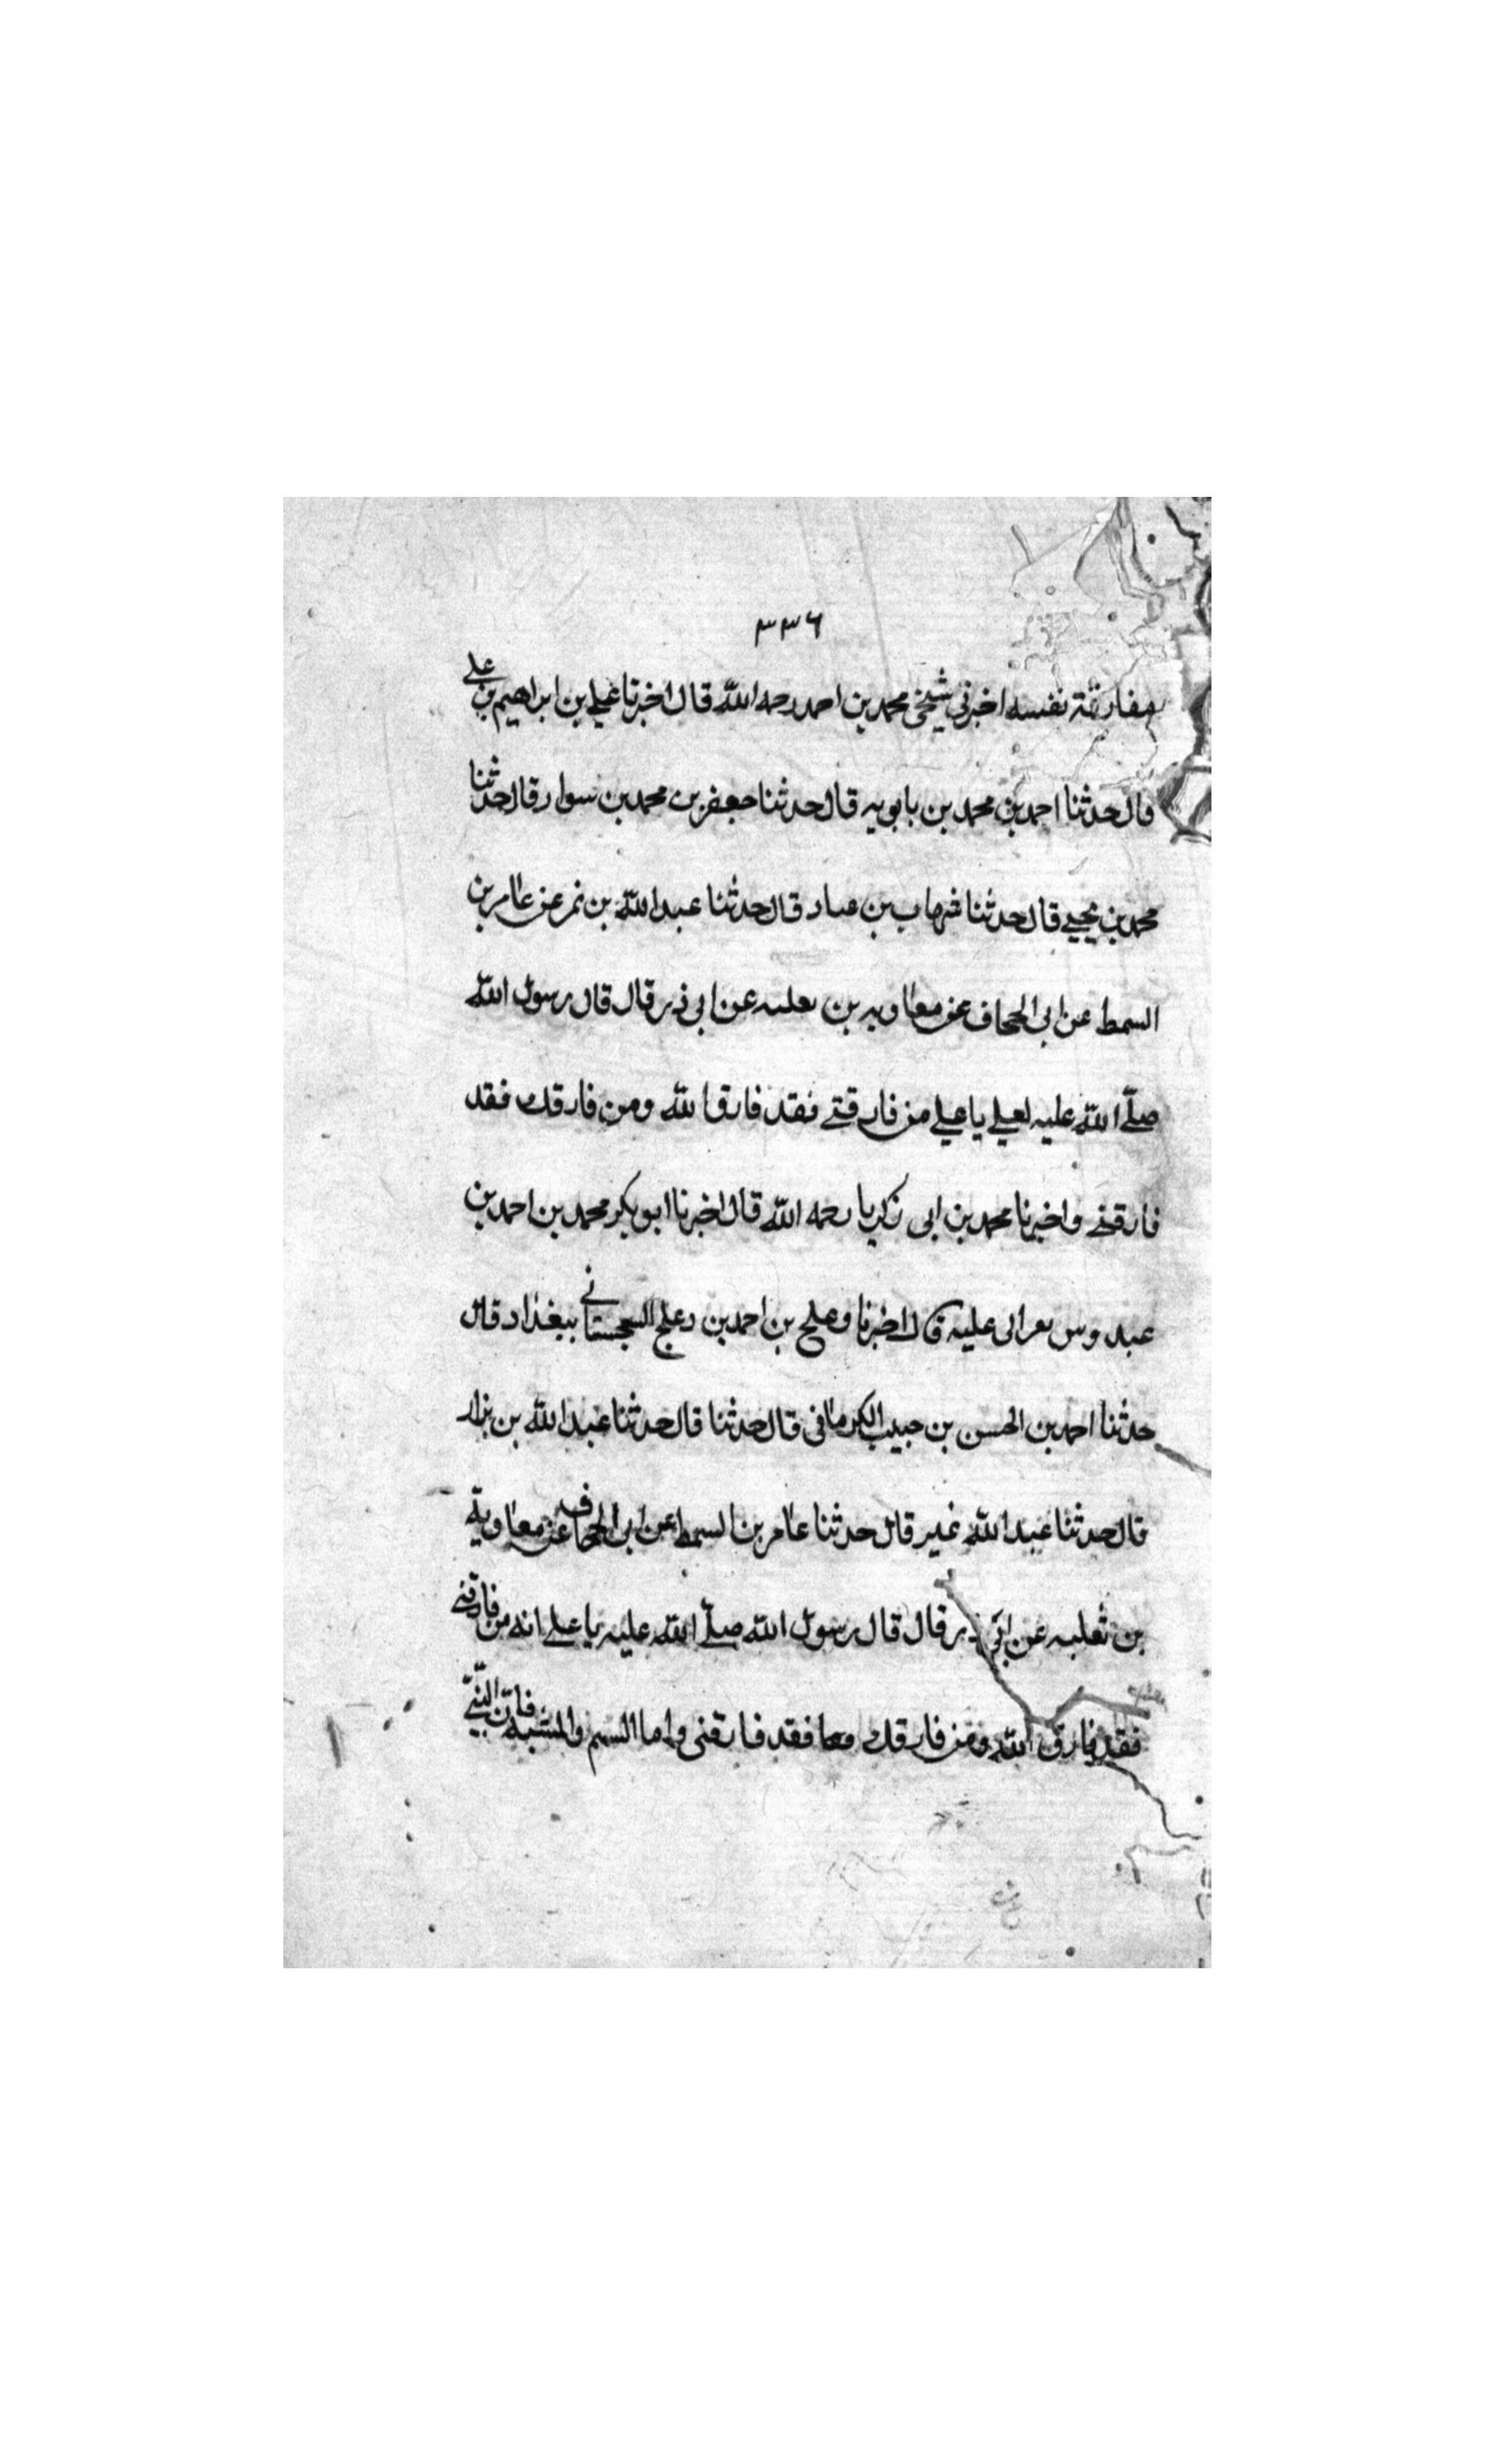 ٣٣٦
بمفارقة نفسه اخبرني شيخي محمد بن احمد رحمه الله قال اخبرنا علي بن ابراهيم بن علي
قال حدثنا احمد بن محمد بن بابويه قال حدثنا جعفر بن محمد بن سوار قال حدثنا
محمد بن يحيي قال حدثنا شهاب بن عباد قال حدثنا عبد الله بن نمر عن عامر بن
السمط عن ابي الجحاف عن معاويه بن ثعلبه عن ابي ذر قال قال رسول الله
صلّى الله عليه لعلي يا علي من فارقني فقد فارق الله ومن فارقك فقد
فارقني واخبرنا محمد بن ابي زكريا رحمه الله قال اخبرنا ابو بكر محمد بن احمد بن
عبدوس عليه قال اخبرنا وعلج بن احمد بن دعلج السجستاني ببغداد قال
حدثنا احمد بن الحسن بن حبيب الكرماني قال حدثنا قال حدثنا عبد الله بن بزار
قال حدثنا عبد الله غير قال حدثنا عامر بن السمط عن ابي الجحاف عن معاوية
بن ثعلبه عن ابي ذر قال قال رسول الله صلّى الله عليه يا علي انه من فارقني
فقد فارق الله ومن فارقك معا فقد فارقني واما السهم والمشبه فان النبي